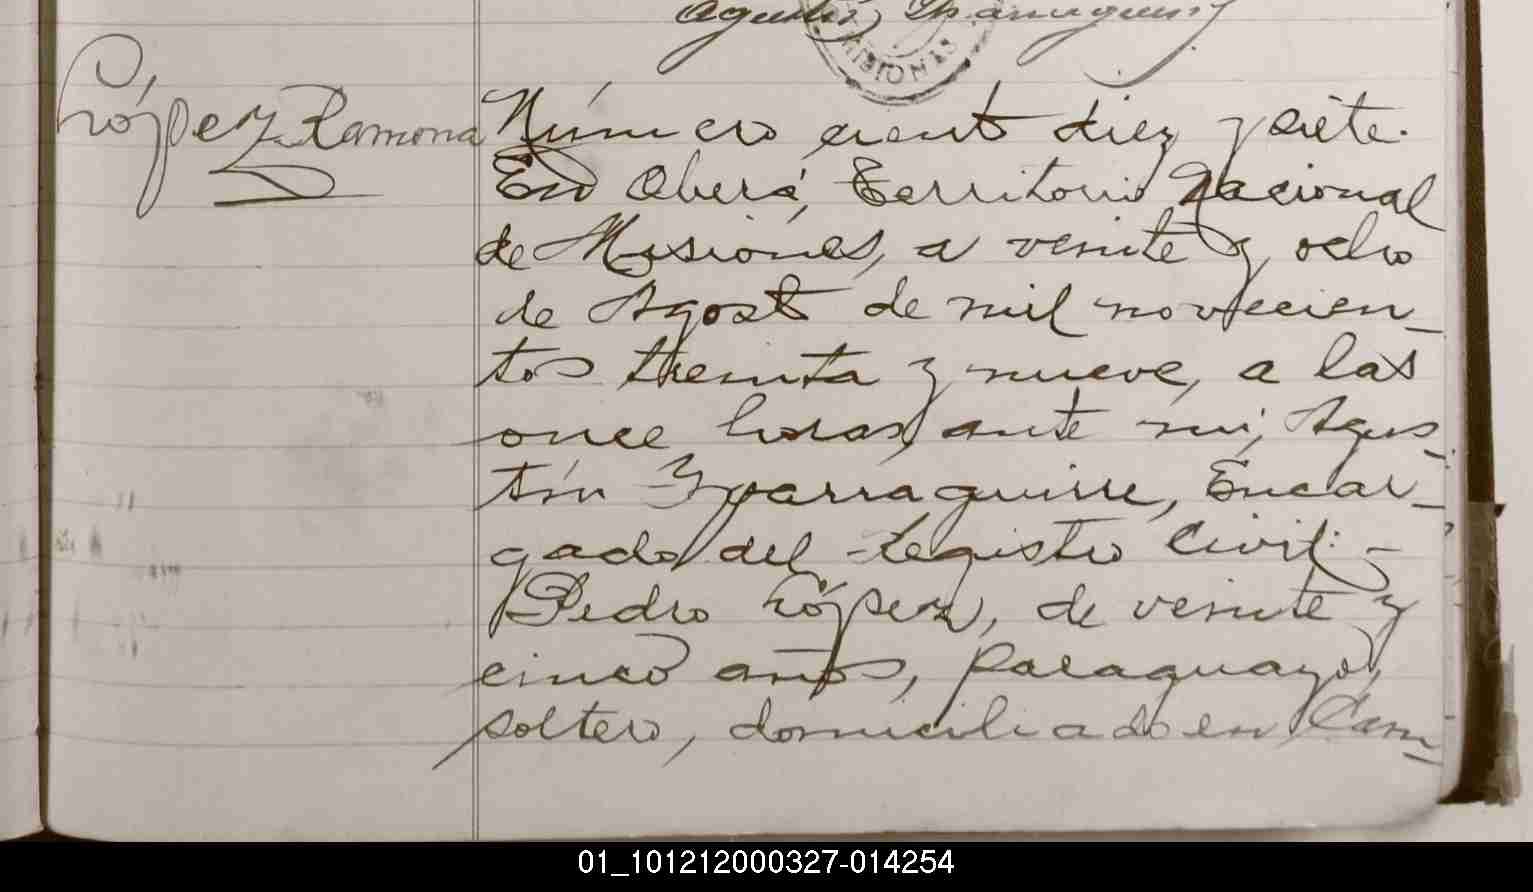 Agustín Yparraguirre
MISIONES
López Ramona
Número ciento diez y siete.
En Oberá, Territorio Nacional
de Misiones, a veinte y ocho
de Agosto de mil novecien-
tos treinta y nueve, a las
once horas, ante mí, Agus-
tín Yparraguirre, Encar-
gado del Registro Civil: -
Pedro López, de veinte y
cinco años, paraguayo,
soltero, domiciliado en Cam-
01_101212000327-014254